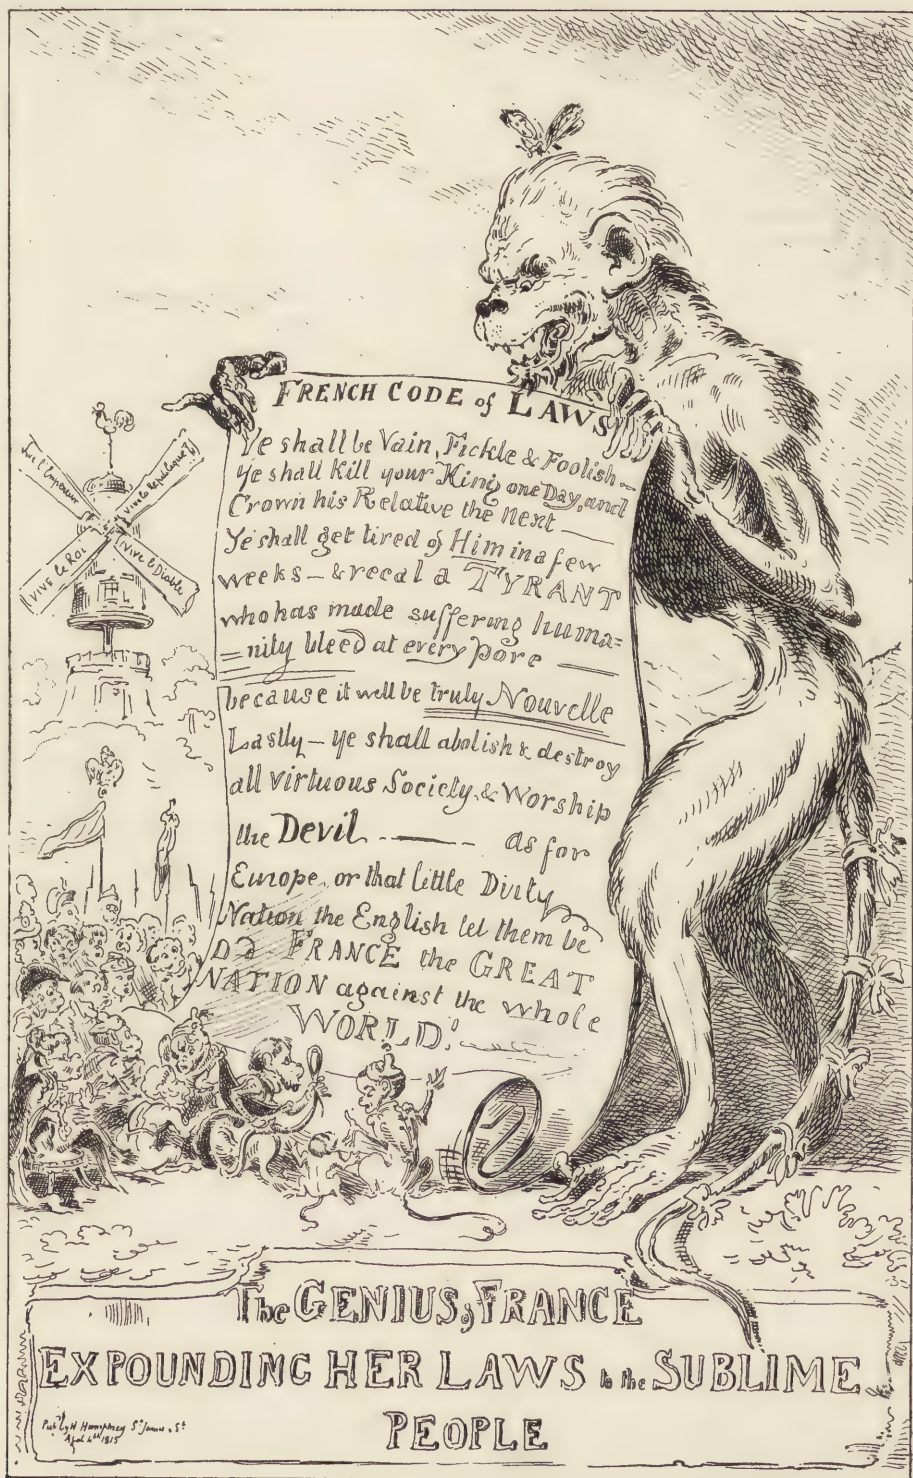 FRENCH CODE of LAWS
Ye shall be Vain, Fickle & Foolish
Ye shall kill your King one Day, and
Crown his Relative the next
Ye shall get tired of Him in a few
weeks – & recal a TYRANT
who has made suffering huma=
=nity bleed at every pore
because it will be truly Nouvelle
Lastly – ye shall abolish & destroy
all virtuous Society, & Worship
the Devil as for
Europe, or that little Dirty
Nation the English let them be
D d FRANCE the GREAT
NATION against the whole
WORLD!
l'Empereur
Vive la Republique
VIVE le ROI
VIVE le Diable
The GENIUS of FRANCE
EXPOUNDING HER LAWS to the SUBLIME
PEOPLE
Pub by H Humphrey St James's St
April 4th 1815